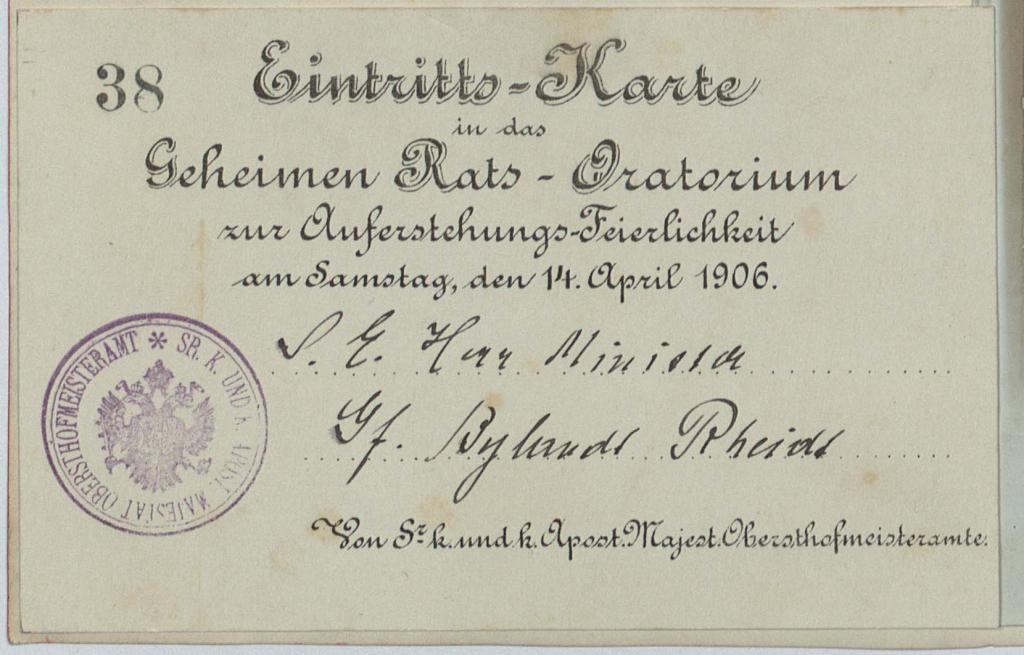 38
Eintritts-Karte
in das
Geheimen Rats-Oratorium
zur Auferstehungs-Feierlichkeit
am Samstag, den 14. April 1906.
S. E. Herr Minister
Gf. Bylandt Rheidt
SR. K. UND K. APOST. MAJESTÄT OBERSTHOFMEISTERAMT *
Von Sr. k. und k. Apost. Majest. Obersthofmeisteramte.